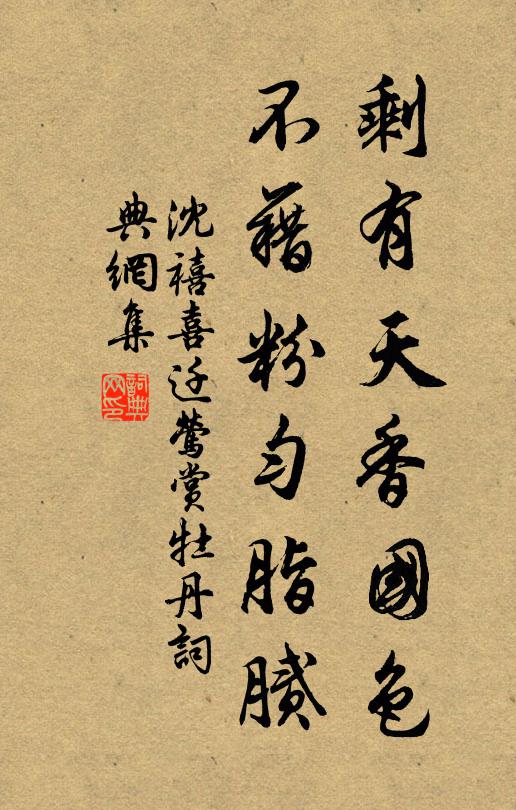 剩有天香國色
不藉粉勻脂膩
沈禧喜迁鶯賞牡丹詞
典網集
詞典網印